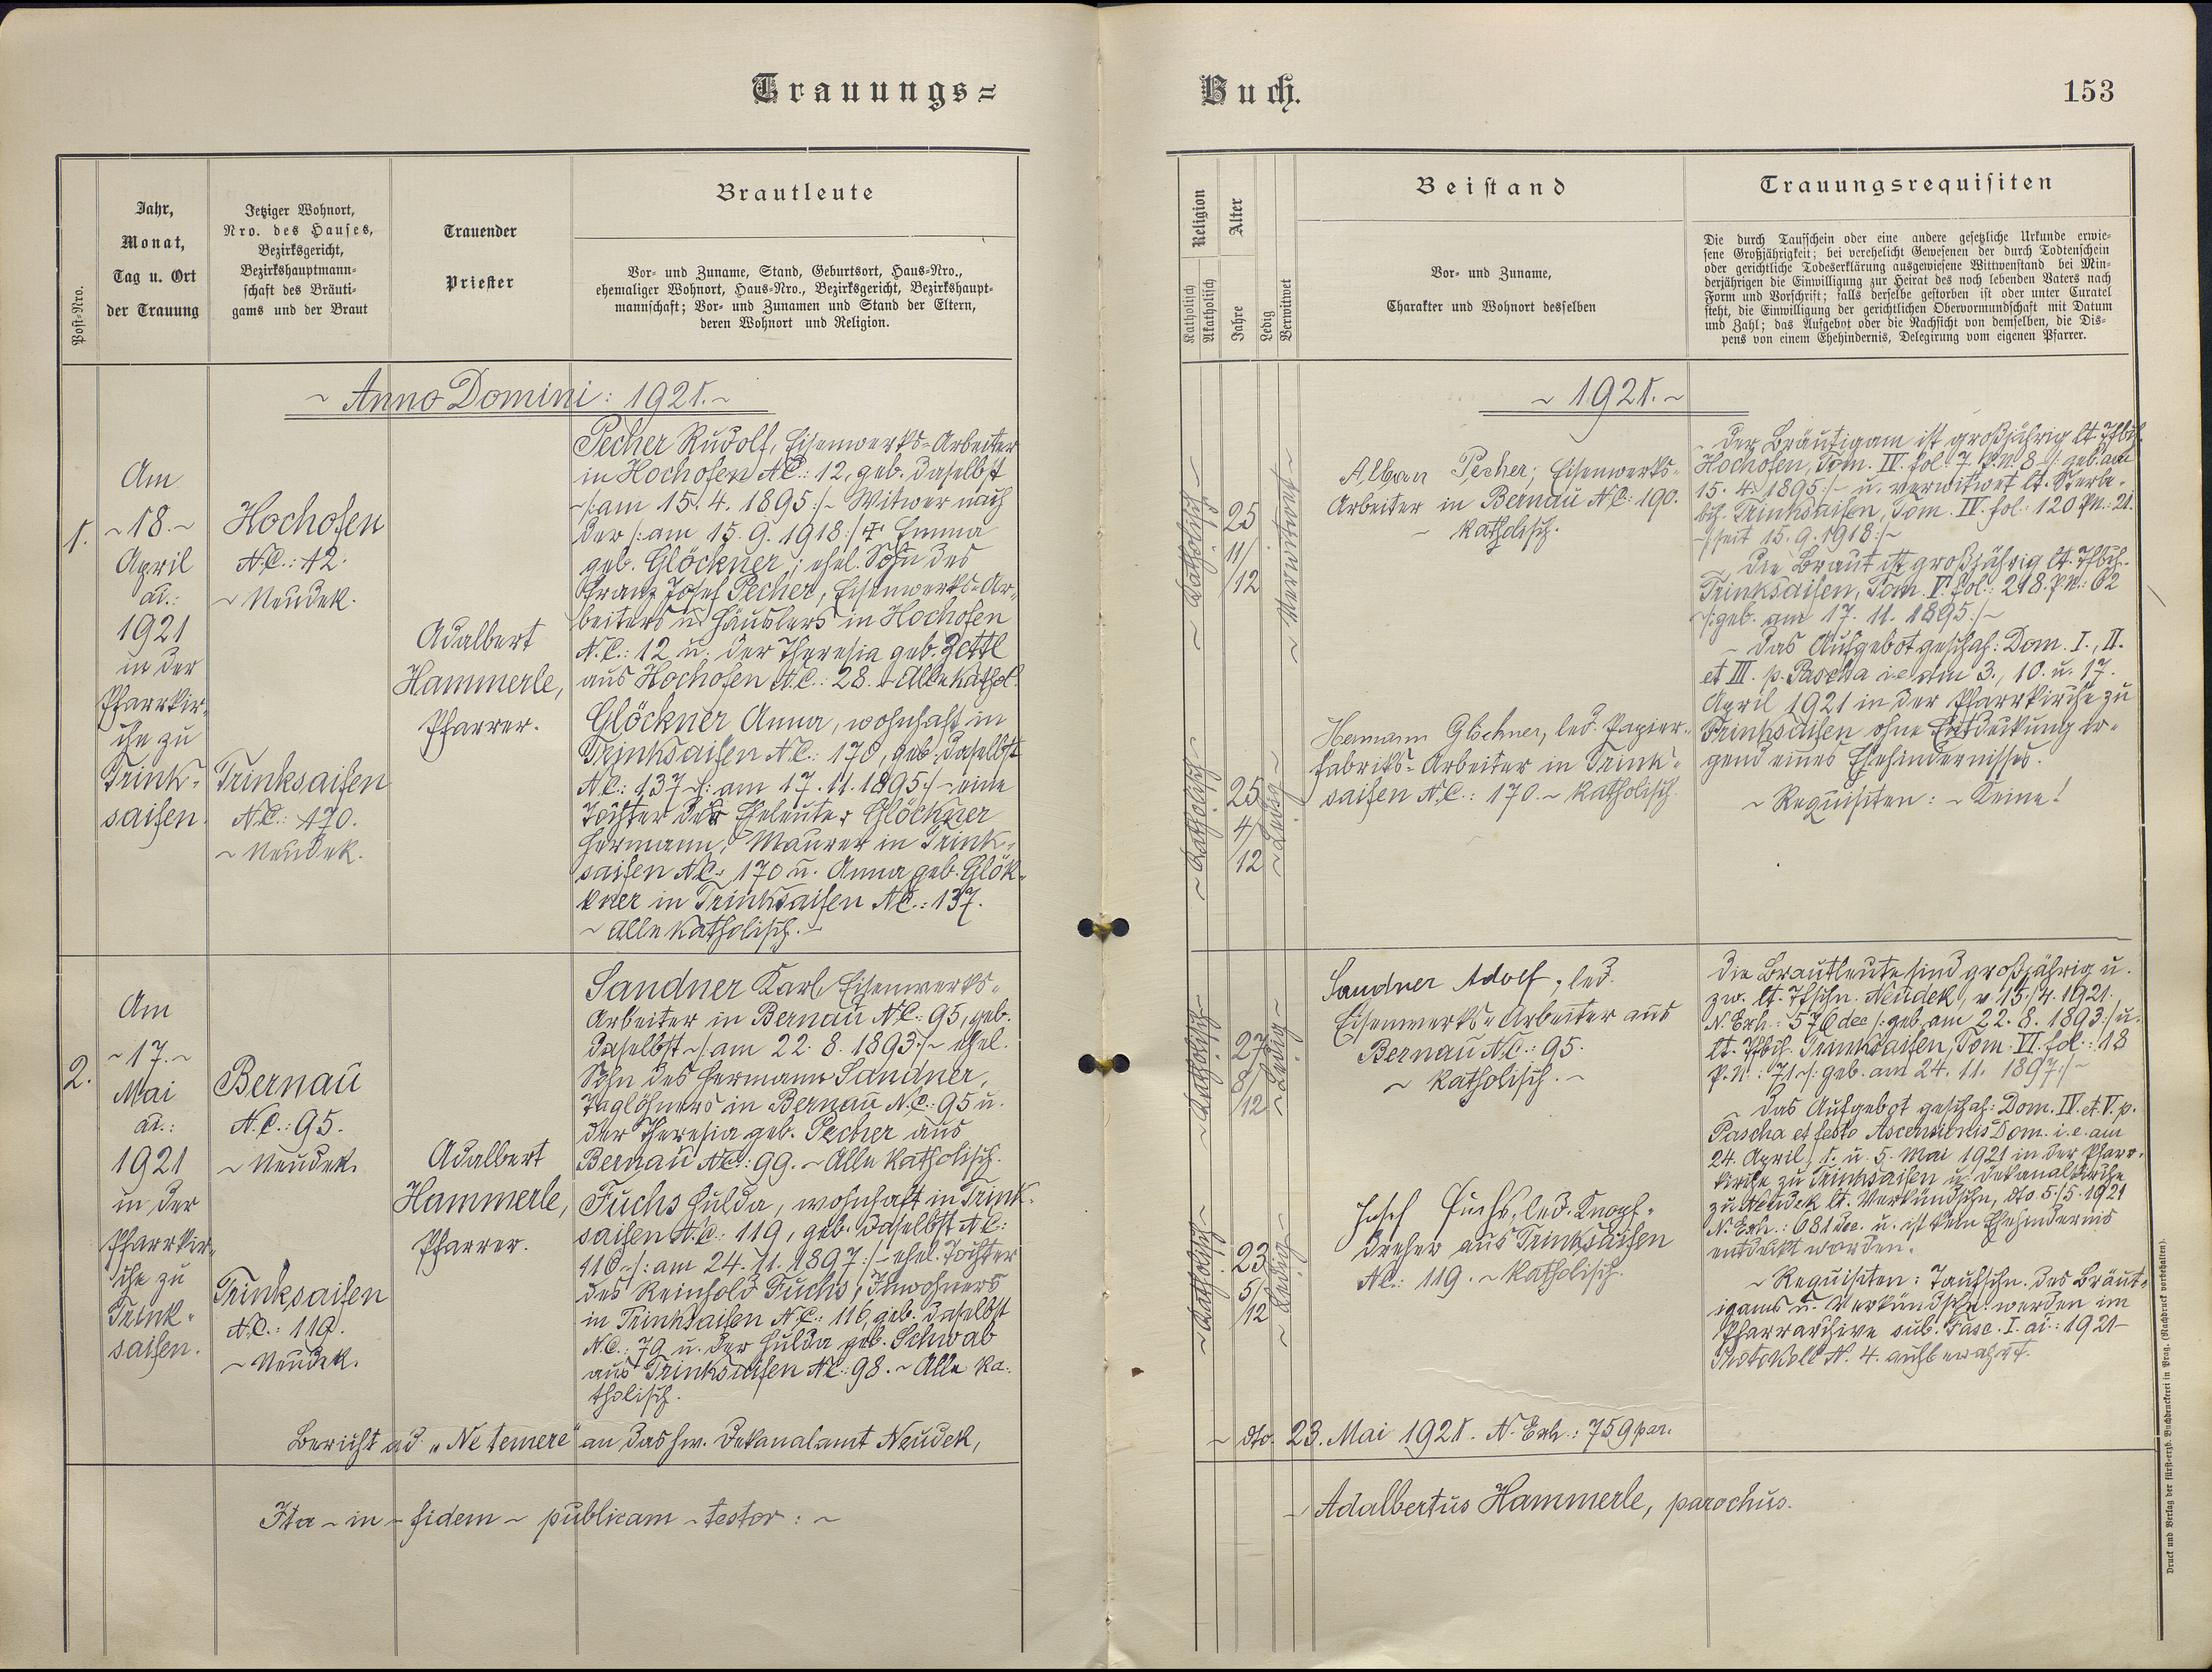 Trauungs=
Buch.
153
Post=Nro.
Jahr,
Monat,
Tag u. Ort
der Trauung
Jetziger Wohnort,
Nro. des Hauses,
Bezirksgericht,
Bezirkshauptmann=
schaft des Bräuti=
gams und der Braut
Trauender
Priester
Brautleute
Vor= und Zuname, Stand, Geburtsort, Haus=Nro.,
ehemaliger Wohnort, Haus=Nro., Bezirksgericht, Bezirkshaupt=
mannschaft; Vor= und Zunamen und Stand der Eltern,
deren Wohnort und Religion.
Religion
Katholisch
Akatholisch
Alter
Jahre
Ledig
Verwitwet
Beistand
Vor= und Zuname,
Charakter und Wohnort desselben
Trauungsrequisiten
Die durch Taufschein oder eine andere gesetzliche Urkunde erwie=
sene Großjährigkeit; bei verehelicht Gewesenen der durch Todtenschein
oder gerichtliche Todeserklärung ausgewiesene Wittwenstand bei Min=
derjährigen die Einwilligung zur Heirat des noch lebenden Vaters nach
Form und Vorschrift; falls derselbe gestorben ist oder unter Curatel
steht, die Einwilligung der gerichtlichen Obervormundschaft mit Datum
und Zahl; das Aufgebot oder die Nachsicht von demselben, die Dis=
pens von einem Ehehindernis, Delegirung vom eigenen Pfarrer.
~ Anno Domini: 1921. ~
~ 1921. ~
1.
Am
~ 18. ~
April
ai.:
1921
in der
Pfarrkir=
che zu
Trink=
saifen.
Hochofen
N.C.: 12.
~ Neudek.
Trinksaifen
N.C.: 170.
~ Neudek.
Adalbert
Hammerle,
Pfarrer.
Pecher Rudolf, Eisenwerks=Arbeiter
in Hochofen N.C.: 12, geb. daselbst
~/: am 15. 4. 1895 :/~ Witwer nach
der /: am 15. 9. 1918 :/ † Emma
geb. Glöckner; ehel. Sohn des
Franz Josef Pecher, Eisenwerks=Ar=
beiters u. Häuslers in Hochofen
N.C.: 12 u. der Theresia geb. Zettl
aus Hochofen N.C.: 28. ~ Alle kathol.
Glöckner Anna, wohnhaft in
Trinksaifen N.C.: 170, geb. daselbst
N.C.: 137 ~/: am 17. 11. 1895 :/~ eine
Tochter der Eheleute Glöckner
Hermann, Maurer in Trink=
saifen N.C.: 170 u. Anna geb. Glök=
kner in Trinksaifen N.C.: 137.
~ Alle katholisch. ~
~ Katholisch ~
25
11/
/12
~ Verwitwet ~
~ Katholisch ~
25
4/
/12
~ Ledig ~
Alban Pecher, Eisenwerks=
Arbeiter in Bernau N.C: 190.
~ katholisch.
Hermann Glöckner, led. Papier=
fabriks=Arbeiter in Trink=
saifen N.C.: 170. ~ katholisch.
~ Der Bräutigam ist großjährig lt. Tfbch.
Hochofen, Tom. IV. fol: 7. P.N. 8 ~/: geb. am
15. 4. 1895 :/~ u. verwitwet lt. Sterbe=
bch. Trinksaifen, Tom. IV. fol.: 120 P.N.: 21.
~/: seit 15. 9. 1918 :/~
~ Die Braut ist großjährig lt. Tfbch.
Trinksaifen, Tom. V. fol.: 218. P.N.: 62
~/: geb. am 17. 11. 1895 :/~
~ Das Aufgebot geschah: Dom. I., II.
et III. p. Pascha i.e. am 3., 10. u. 17.
April 1921 in der Pfarrkirche zu
Trinksaifen ohne Entdeckung ir=
gend eines Ehehindernisses.
~ Requisiten: ~ Keine!
2.
Am
~ 17. ~
Mai
ai.:
1921
in der
Pfarrkir=
che zu
Trink=
saifen.
Bernau
N.C.: 95.
~ Neudek.
Trinksaifen
N.C.: 119.
~ Neudek.
Adalbert
Hammerle,
Pfarrer.
Sandner Karl, Eisenwerks=
Arbeiter in Bernau N.C: 95, geb.
daselbst ~/: am 22. 8. 1893 :/~ ehel.
Sohn des Hermann Sandner,
Taglöhners in Bernau N.C.: 95 u.
der Theresia geb. Pecher aus
Bernau N.C.: 99. ~ Alle katholisch.
Fuchs Hulda, wohnhaft in Trink=
saifen N.C.: 119, geb. daselbst N.C:
116 ~/: am 24. 11. 1897 :/~ ehel. Tochter
des Reinhold Fuchs, Inwohners
in Trinksaifen N.C.: 116, geb. daselbst
N.C.: 79 u. der Hulda geb. Schwab
aus Trinksaifen N.C: 98. ~ Alle ka=
tholisch.
~ Katholisch ~
27
8/
/12
~ Ledig ~
~ Katholisch ~
23
5/
/12
~ Ledig ~
Sandner Adolf, led.
Eisenwerks=Arbeiter aus
Bernau N.C.: 95.
~ katholisch. ~
Josef Fuchs, led. Knopf=
dreher aus Trinksaifen
N.C.: 119. ~ katholisch.
Die Brautleute sind großjährig u.
zw. lt. Tfschn. Neudek, v. 15./4. 1921.
N. Exh.: 576 dec /: geb. am 22. 8. 1893 :/ u.
lt. Tfbch. Trinksaifen, Tom. VI. fol.: 18
P.N.: 71 ~/: geb. am 24. 11. 1897 :/~
~ Das Aufgebot geschah: Dom. IV. et. V. p.
Pascha et festo Ascensionis Dom. i.e. am
24. April, 1. u. 5. Mai 1921 in der Pfarr=
kirche zu Trinksaifen u. Dekanalkirche
zu Neudek lt. Verkündschn. dto. 5./5. 1921
N. Exh.: 681 dec. u. ist kein Ehehindernis
entdeckt worden.
~ Requisiten: Taufschn. des Bräut=
igams u. Verkündschn. werden im
Pfarrarchive sub. Fasc. I. ai.: 1921 ~
Protokoll N. 4. aufbewahrt.
Bericht ad „Ne temere“ an das hw. Dekanalamt Neudek,
~ dto. 23. Mai 1921. N. Exh.: 759 par.
Ita ~ in ~ fidem ~ publicam ~ testor: ~
~ Adalbertus Hammerle, parochus.
Druck und Verlag der fürst=erzb. Buchdruckerei in Prag. (Nachdruck vorbehalten).